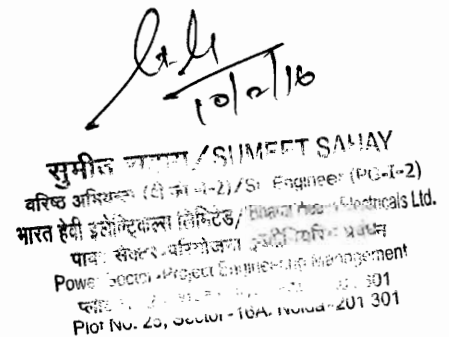 10/2/16
सुमीत सहाय / SUMEET SAHAY
वरिष्ठ अभियन्ता (पी जी-I-2)/Sr. Engineer (PG-I-2)
भारत हेवी इलेक्ट्रिकल्स लिमिटेड/ Bharat Heavy Electricals Ltd.
पावर सेक्टर-परियोजना इंजीनियरिंग प्रबंधन
Power Sector-Project Engineering Management
प्लाट 301
Plot No. 25, Sector-16A, Noida-201 301